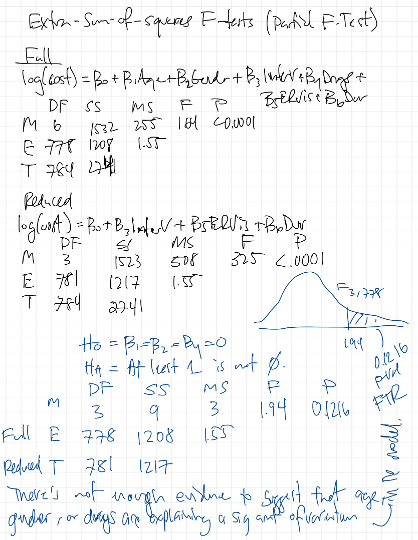 Extra-Sum-of-squares F-tests (Partial F-Test)
Full
log(cost) = B0 + B1Age + B2Gender + B3Interv + B4Drugs +
B5ERVis + B6Dur
DF SS MS F P
M 6 1532 255 164 <0.0001
E 778 1208 1.55
T 784 2741
Reduced
log(cost) = B0 + B3InterV + B5ERVis + B6Dur
DF SS MS F P
M 3 1523 508 325 <.0001
E 781 1217 1.55
T 784 2241
F3,778
1.94
0.1216
pval
FTR
H0 = B1=B2=B4=0
HA = At least 1 is not 0.
DF SS MS F P
M 3 9 3 1.94 0.1216
Full E 778 1208 1.55
Reduced T 781 1217
There's not enough evidence to suggest that age,
gender, or drugs are explaining a sig amt of variation
in the model.